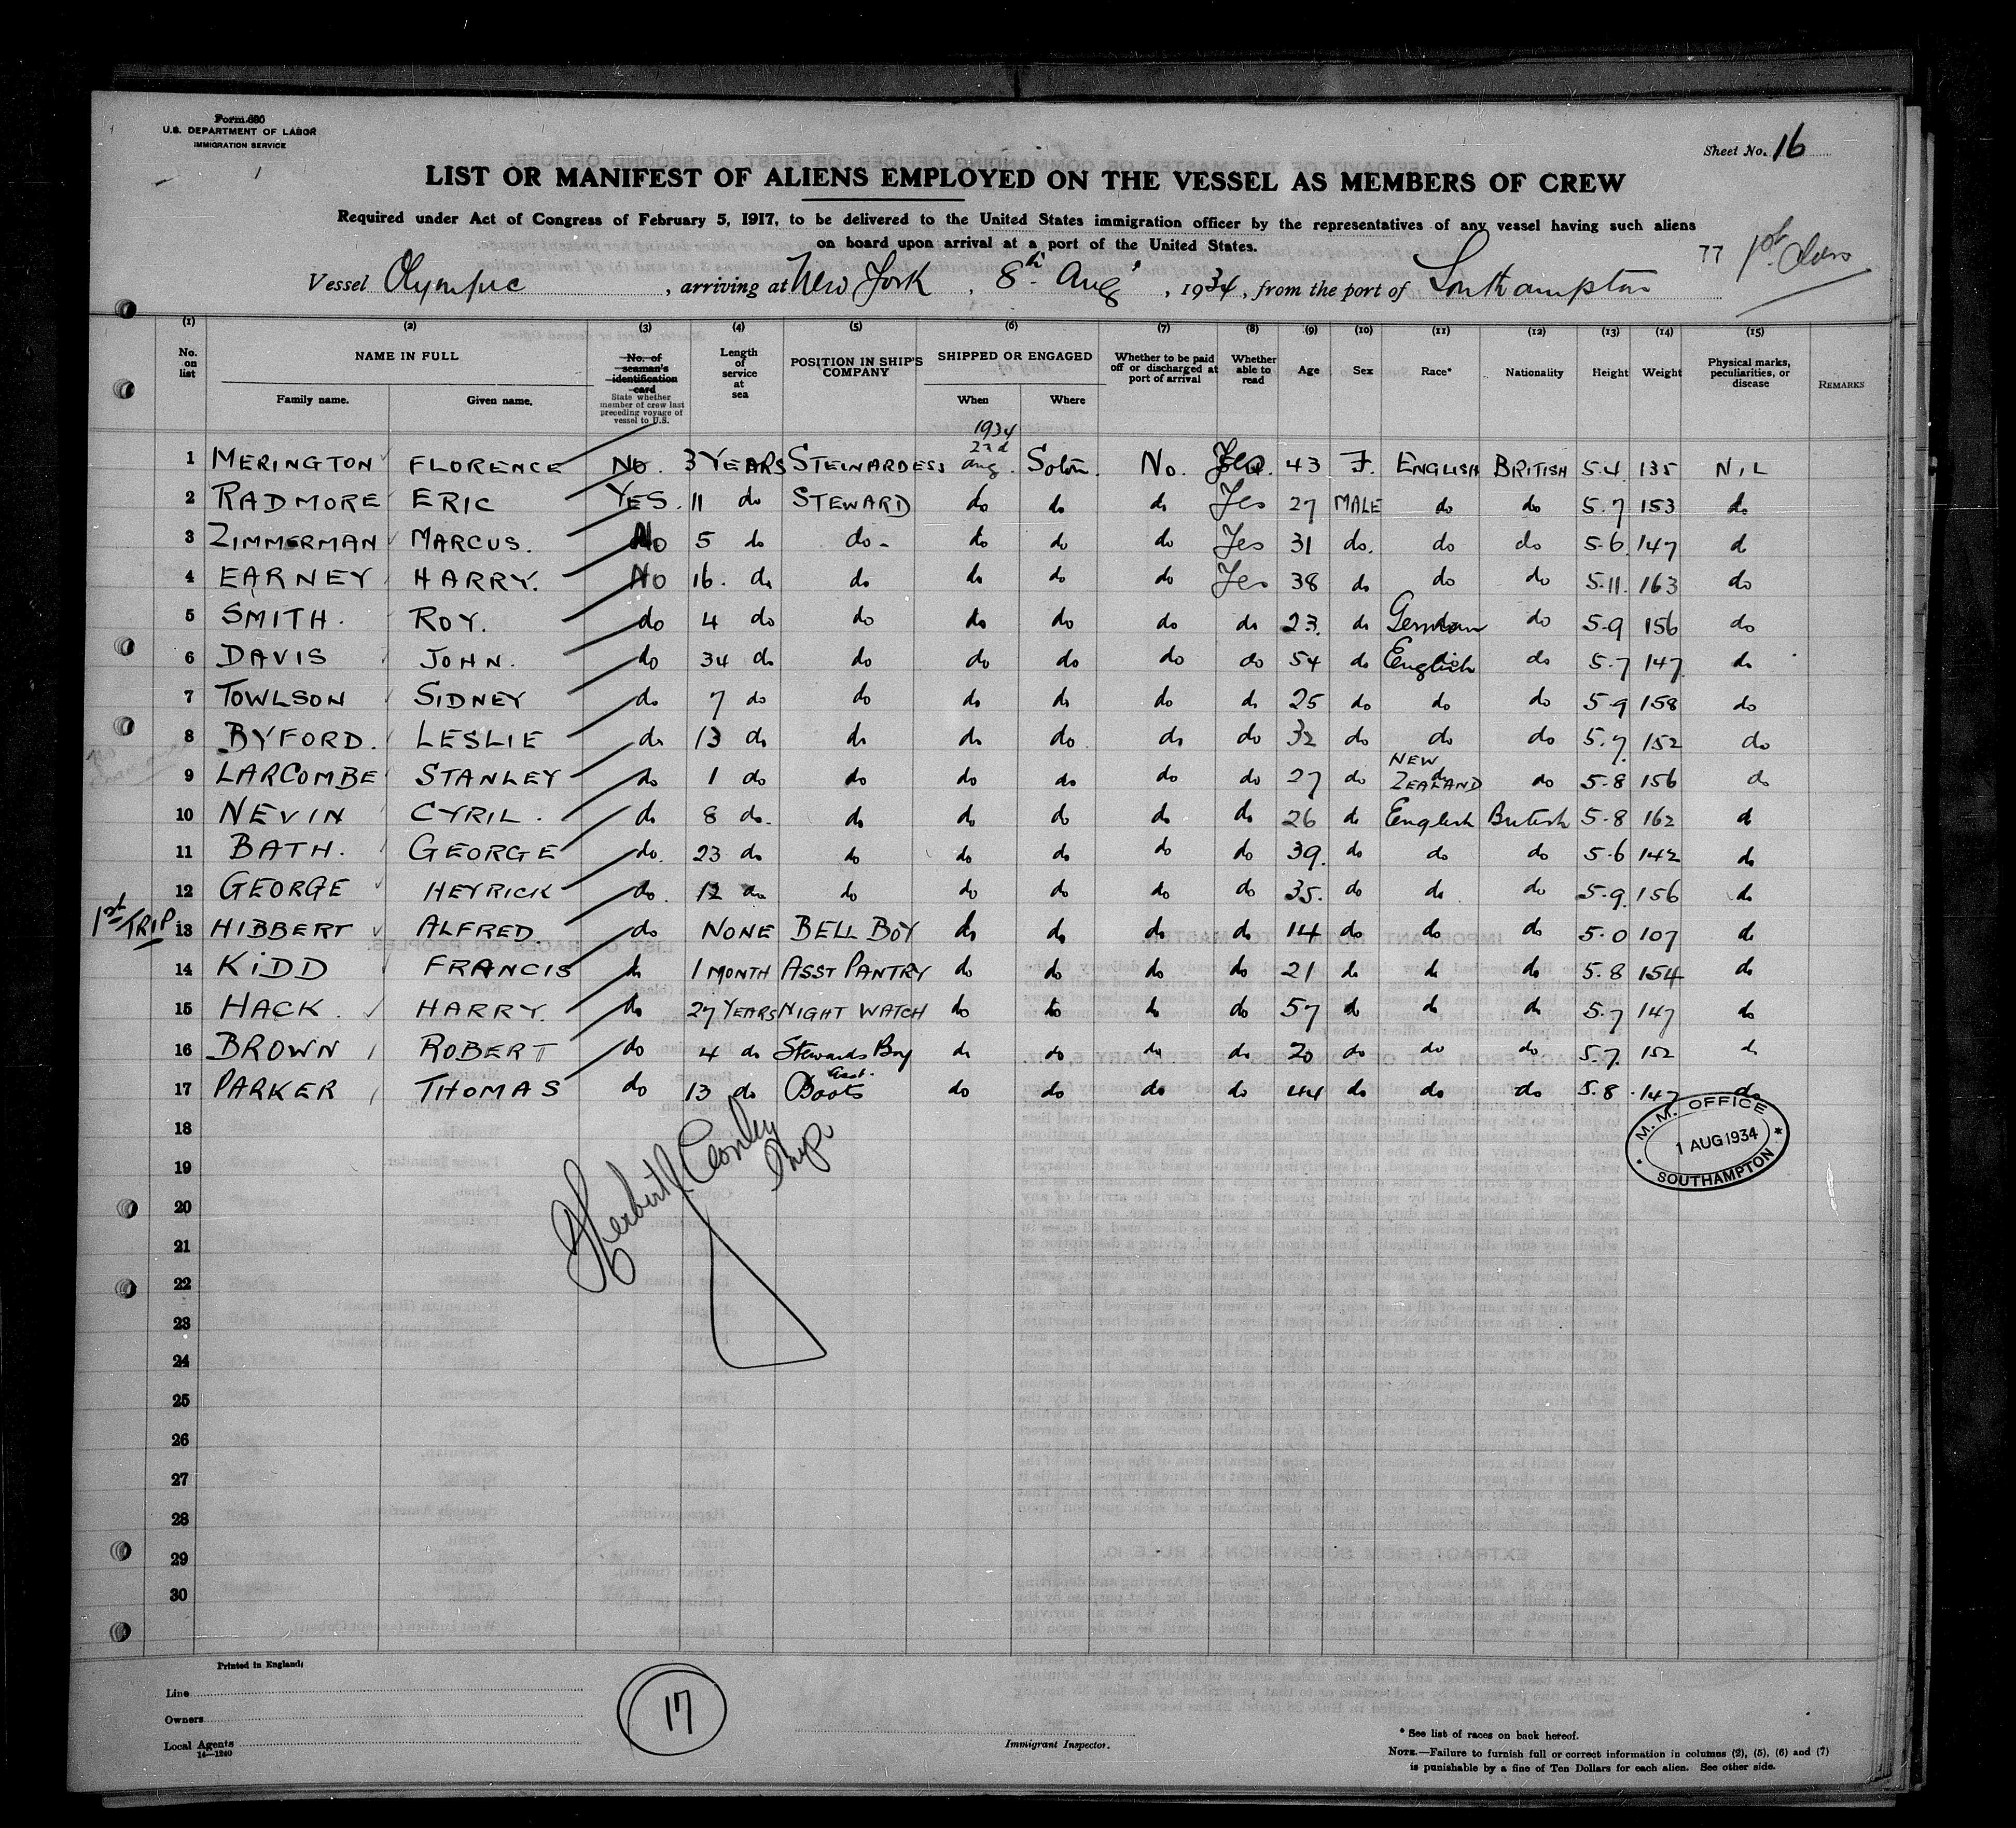 Form 680
U.S. DEPARTMENT OF LABOR
IMMIGRATION SERVICE
Sheet No. 16
LIST OR MANIFEST OF ALIENS EMPLOYED ON THE VESSEL AS MEMBERS OF CREW
Required under Act of Congress of February 5, 1917, to be delivered to the United States immigration officer by the representatives of any vessel having such aliens
on board upon arrival at a port of the United States.
77 1st Class
Vessel Olympic, arriving at New York, 8th Aug, 1934, from the port of Southampton
(1) (2) (3) (4) (5) (6) (7) (8) (9) (10) (11) (12) (13) (14) (15)
No. on list NAME IN FULL Family name. Given name. No. of seaman's identification card State whether member of crew last preceding voyage of vessel to U.S. Length of service at sea POSITION IN SHIP'S COMPANY SHIPPED OR ENGAGED When Where Whether to be paid off or discharged at port of arrival Whether able to read Age Sex Race* Nationality Height Weight Physical marks, peculiarities, or disease REMARKS
1934
1 MERINGTON FLORENCE No. 3 YEARS STEWARDESS 22d Aug. Soton. No. Yes. 43 F. ENGLISH BRITISH 5.4 135 NIL
2 RADMORE ERIC YES. 11 do STEWARD do do do Yes 27 MALE do do 5.7 153 do
3 ZIMMERMAN MARCUS. No 5 do do - do do do Yes 31 do. do do 5.6 147 do
4 EARNEY HARRY. No 16. do do do do do Yes 38 do do do 5.11. 163 do
5 SMITH. ROY. do 4 do do do do do do 23. do German do 5.9 156 do
6 DAVIS JOHN. do 34 do do do do do do 54 do English do 5.7 147 do
7 TOWLSON SIDNEY do 7 do do do do do do 25 do do do 5.9 158 do
8 BYFORD. LESLIE do 13 do do do do do do 32 do do do 5.7 152 do
9 LARCOMBE STANLEY do 1 do do do do do do 27 do NEW ZEALAND do 5.8 156 do
10 NEVIN CYRIL. do 8 do. do do do do do 26 do English British 5.8 162 do
11 BATH. GEORGE do. 23 do do do do do do 39. do do do 5.6 142 do
12 GEORGE HEYRICK do. 12 do do do do do do 35. do do do 5.9. 156 do
1st TRIP 13 HIBBERT ALFRED. do NONE BELL BOY do do do do 14 do do do 5.0 107 do
14 KIDD FRANCIS do 1 MONTH ASST PANTRY do do do do 21 do do do 5.8 154 do
15 HACK. HARRY. do 27 YEARS NIGHT WATCH do do do do 57 do do do 5.7 147 do
16 BROWN ROBERT do 4 do Stewards Boy do do do do 20 do do do 5.7. 152 do
17 PARKER THOMAS do 13 do Asst. Boots do do do do 44 do do do 5.8 147 do
18
19
20
21
22
23
24
25
26
27
28
29
30
M. M. OFFICE
1 AUG 1934
SOUTHAMPTON
Printed in England:
Line
Owners
Local Agents
14—1240
17
Immigrant Inspector.
* See list of races on back hereof.
NOTE.—Failure to furnish full or correct information in columns (2), (5), (6) and (7)
is punishable by a fine of Ten Dollars for each alien. See other side.